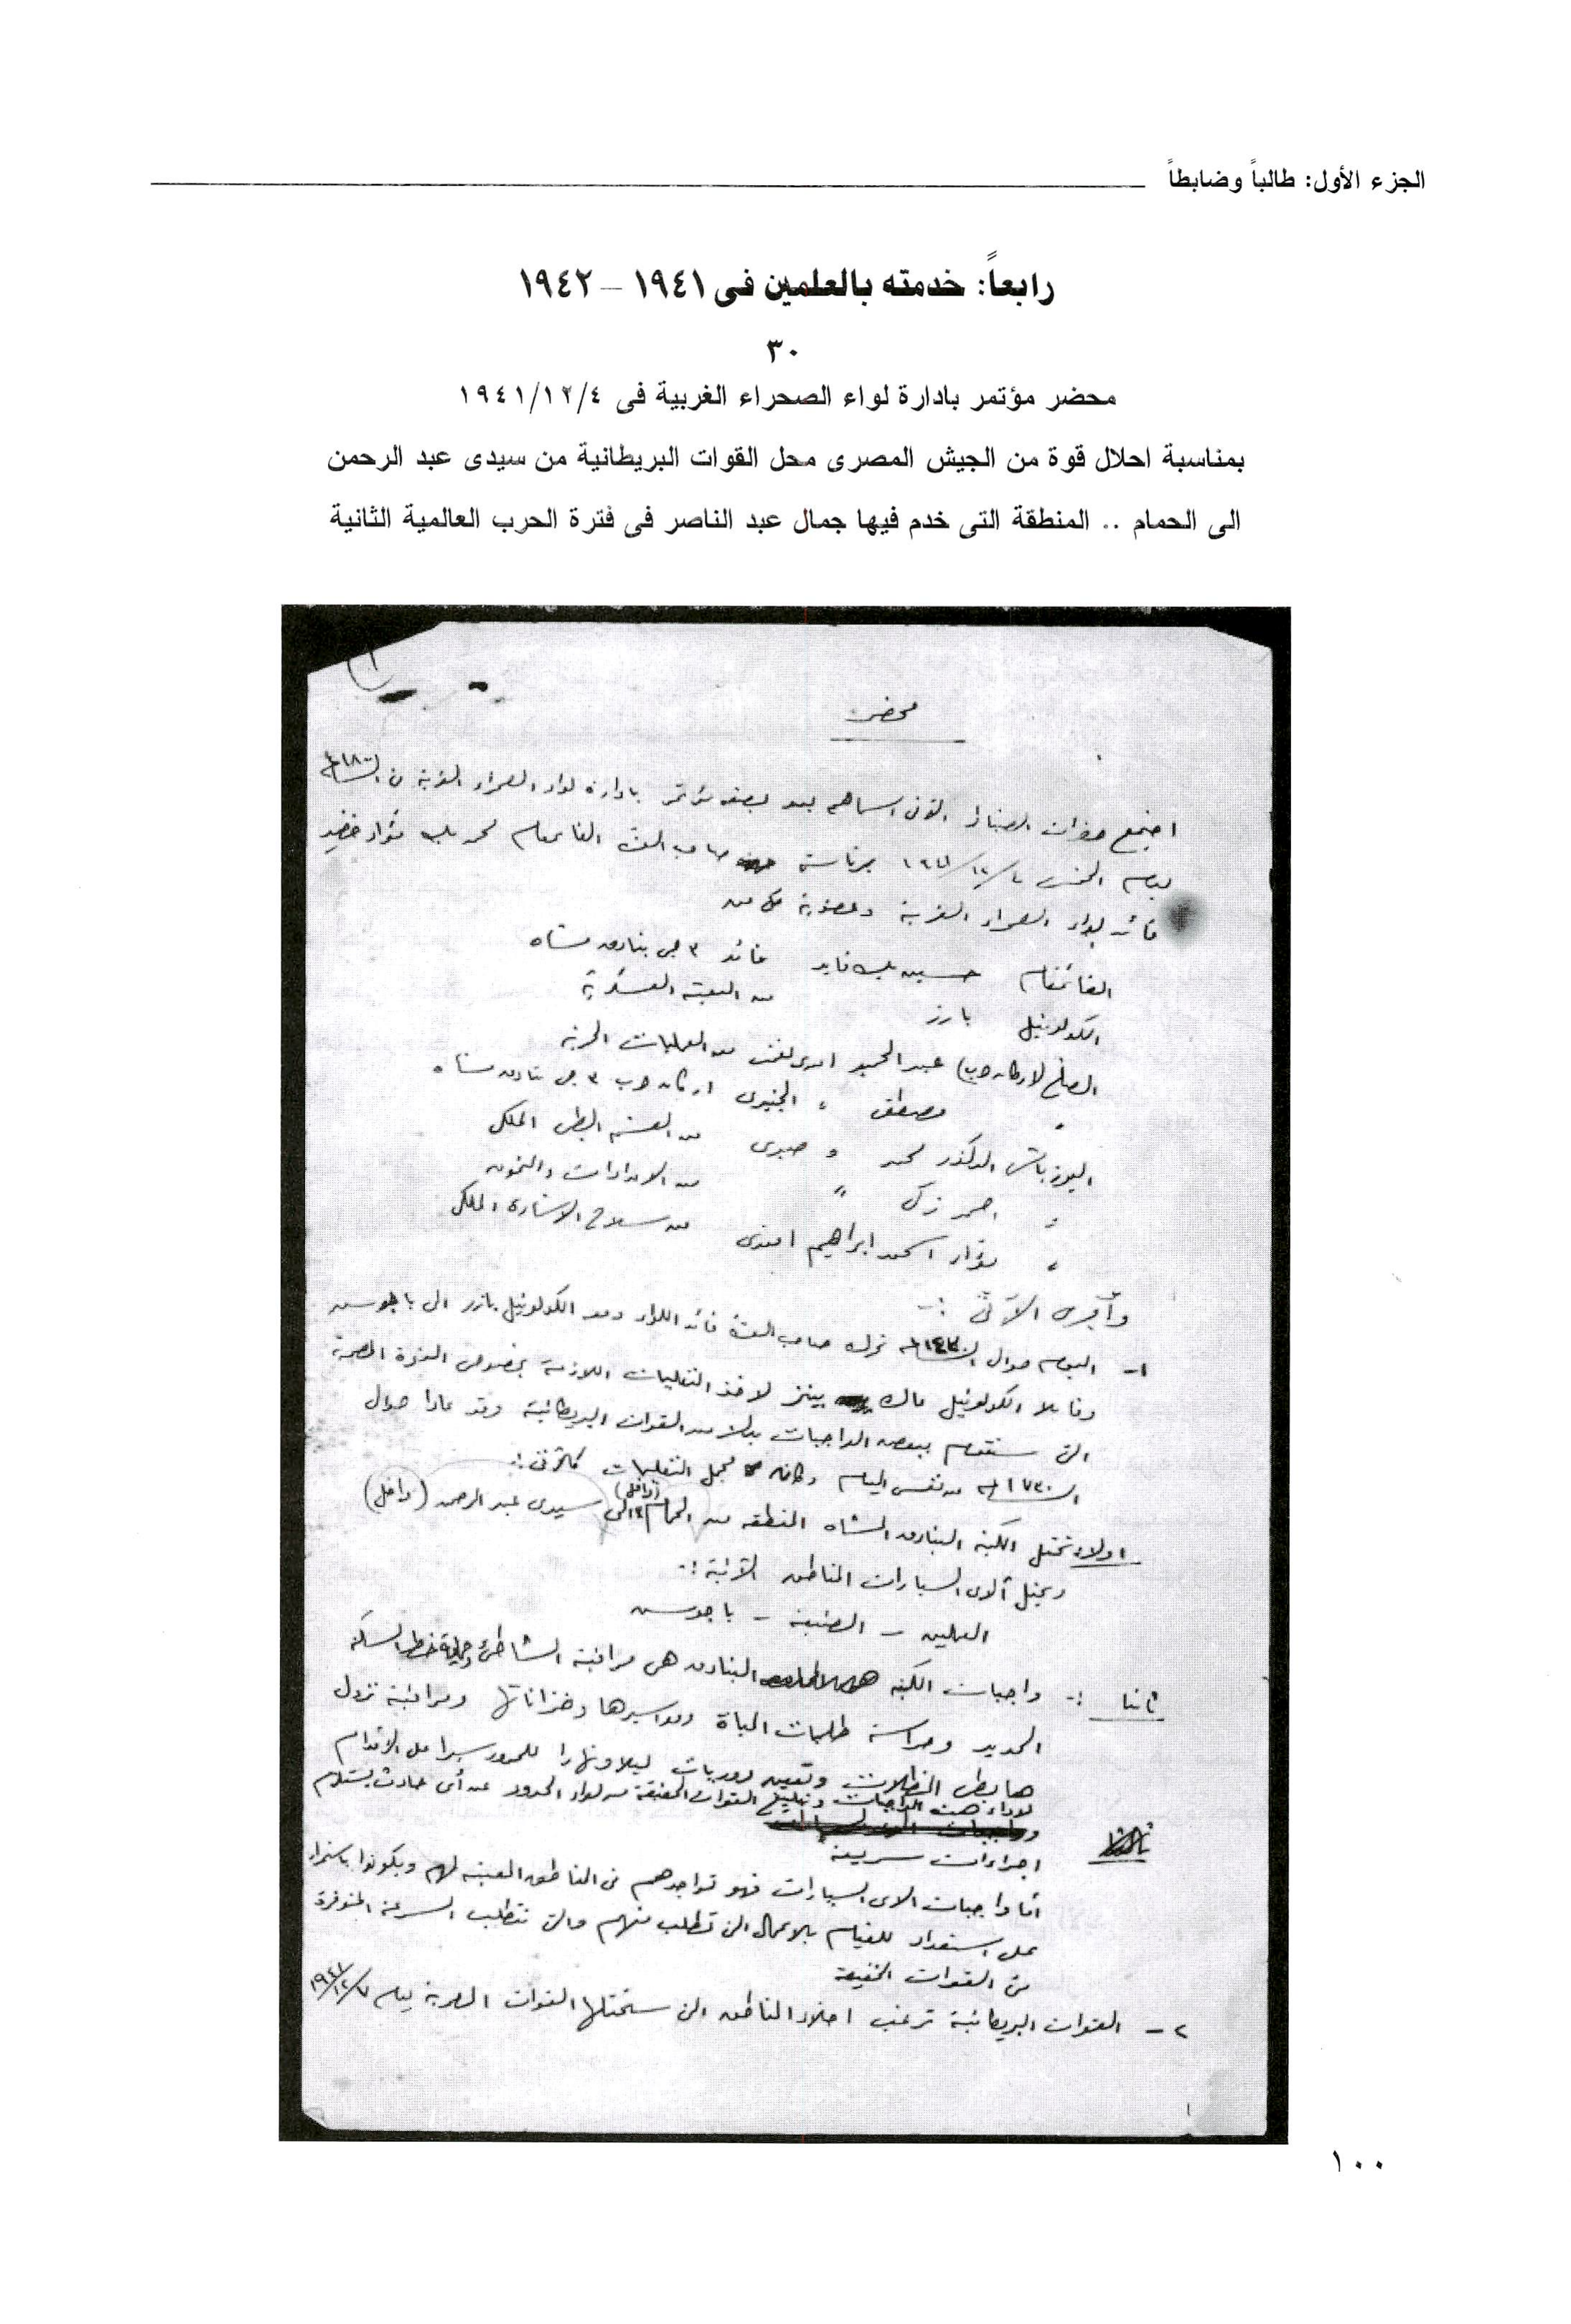 الجزء الأول: طالباً وضابطاً
رابعاً: خدمته بالعلمين فى ١٩٤١ – ١٩٤٢
٣٠
محضر مؤتمر بادارة لواء الصحراء الغربية فى ١٩٤١/١٢/٤
بمناسبة احلال قوة من الجيش المصرى محل القوات البريطانية من سيدى عبد الرحمن
الى الحمام .. المنطقة التى خدم فيها جمال عبد الناصر فى فترة الحرب العالمية الثانية
محضر
اجتمع حضرات الضباط الآتى اسماهم بعد بصفة مؤتمر بادارة لواء الصحراء الغربية فى الساعة ١٨٠٠
يوم الخميس ١٩٤١/١٢/٤ برئاسة صاحب العزة القائمقام محمد بك فؤاد
قائد لواء الصحراء الغربية وعضوية كل من
القائمقام حسين بك فايد قائد ٣ جى بنادق مشاه
الكولونيل بارز من البعثة العسكرية
الصاغ (اركان حرب) عبد الحميد افندى من العمليات الحربية
" مصطفى " اركان حرب ٣ جى بنادق مشاه
اليوزباشى الدكتور محمد " صبرى من القسم الطبى الملكى
" احمد زكى " من الامدادات والتموين
" فؤاد احمد ابراهيم افندى من سلاح الاشارة الملكى
وأجرى الآتى :-
١- اليوم حوالى الساعة ١٤٣٠ تحرك صاحب العزة قائد اللواء ومعه الكولونيل بارز الى باجوس
وقابلا الكولونيل لاخذ التعليمات اللازمة بخصوص القوة المصرية
التى ستقوم ببعض الواجبات بدلا من القوات البريطانية وقد عادا حوالى
الساعة ١٧٣٠ من نفس اليوم وكانت مجمل التعليمات كالآتى :-
اولا :- تحتل الكتيبة البنادق المشاه المنطقه من الحمام (داخل) الى سيدى عبد الرحمن (داخل)
ويحتل ألاى السيارات المناطق الآتية :-
العلمين – الضبعة – باجوس
ثانيا :- واجبات الكتيبة البنادق هى مراقبة الشاطئ وحماية خط السكة
الحديد وحراسة طلمبات المياة ومواسيرها وخزاناتها ومراقبة نزول
هابطى المظلات وتعيين دوريات ليلا ونهارا للمرور سيرا على الاقدام
لاداء هذه الواجبات وتبليغ القوات الخفيفة من لواء الحدود عن أى حادث يستلزم
اجراءات سريعة
أما واجبات الاى السيارات فهو تواجدهم فى المناطق المعينة لهم ويكونوا باستمرار
على استعداد للقيام بالاعمال التى تطلب منهم والتى تتطلب السرعة المتوفرة
فى القوات الخفيفة
٢ – القوات البريطانية ترغب اخلاء المناطق التى ستحتلها القوات المصرية يوم ١٩٤١/١٢/٧
١٠٠